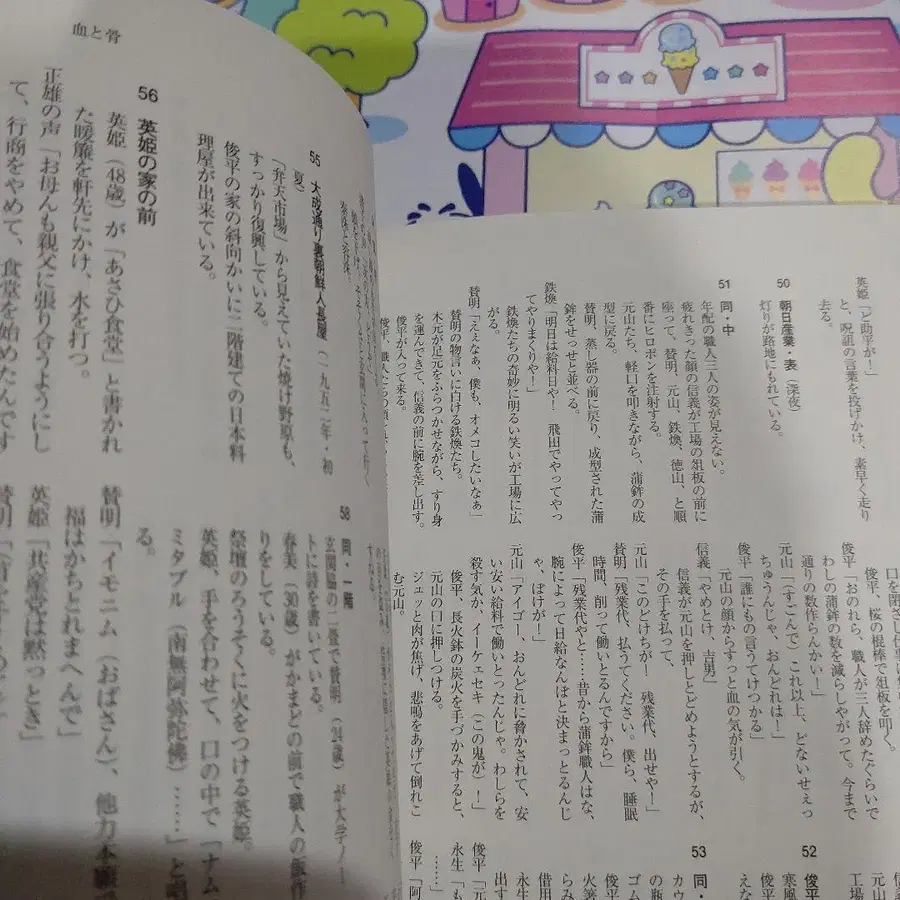 英姫「ど助平が！」
と、呪詛の言葉を投げかけ、素早く走り
去る。
50 朝日産業・表（深夜）
灯りが路地にもれている。
51 同・中
年配の職人三人の姿が見えない。
疲れきった顔の信義が工場の俎板の前に
座って、賛明、元山、鉄煥、徳山、と順
番にヒロポンを注射する。
元山たち、軽口を叩きながら、蒲鉾の成
型に戻る。
賛明、蒸し器の前に戻り、成型された蒲
鉾をせっせと並べる。
鉄煥「明日は給料日や！　飛田でやってやっ
てやりまくりや！」
鉄煥たちの奇妙に明るい笑いが工場に広
がる。
賛明「ええなぁ、僕も、オメコしたいなぁ」
賛明の物言いに白ける鉄煥たち。
木元が足元をふらつかせながら、すり身
を運んできて、信義の前に腕を差し出す。
俊平が入って来る。
俊平、職人たちの
俊平、桜の棍棒で俎板を叩く。
俊平「おのれら、職人が三人辞めたぐらいで
わしの蒲鉾の数を減らしやがって。今まで
通りの数作らんかい！」
元山「（すごんで）これ以上、どないせぇっ
ちゅうんじゃ、おんどれは！」
俊平「誰にもの言うてけつかる」
元山の顔からすっと血の気が引く。
信義「やめとけ、吉男」
信義が元山を押しとどめようとするが、
その手を払って、
元山「このどけちが！　残業代、出せや！」
賛明「残業代、払うてください。僕ら、睡眠
時間、削って働いとるんですから」
俊平「残業代やと……昔から蒲鉾職人はな、
腕によって日給なんぼと決まっとるんじ
ゃ、ぼけが！」
元山「アイゴー、おんどれに脅かされて、安
い安い給料で働いとったんじゃ。わしらを
殺す気か、イーケェセキ（この鬼が）！」
俊平、長火鉢の炭火を手づかみすると、
元山の口に押しつける。
ジュッと肉が焦げ、悲鳴をあげて倒れこ
む元山。
52 俊平
寒風
俊平
53 同・
カウ
の瓶
ゴム
火箸
らみ
借用
永生
出す
俊平「元
永生「も
……」
俊平「阿
血と骨
55 大成通り裏朝鮮人長屋（一九五二年・初
夏）
「弁天市場」から見えていた焼け野原も、
すっかり復興している。
俊平の家の斜向かいに二階建ての日本料
理屋が出来ている。
56 英姫の家の前
英姫（48歳）が「あさひ食堂」と書かれ
た暖簾を軒先にかけ、水を打つ。
正雄の声「お母んも親父に張り合うようにし
て、行商をやめて、食堂を始めたんです
58 同・一階
玄関脇の二畳で賛明（24歳）が大学ノー
トに詩を書いている。
春美（30歳）がかまどの前で職人の飯作
りをしている。
祭壇のろうそくに火をつける英姫。
英姫、手を合わせて、口の中で「ナム
ミタブル（南無阿弥陀佛）……」と唱
る。
賛明「イモニム（おばさん）、他力本願で
福はかちとれまへんで」
英姫「共産党は黙っとき」